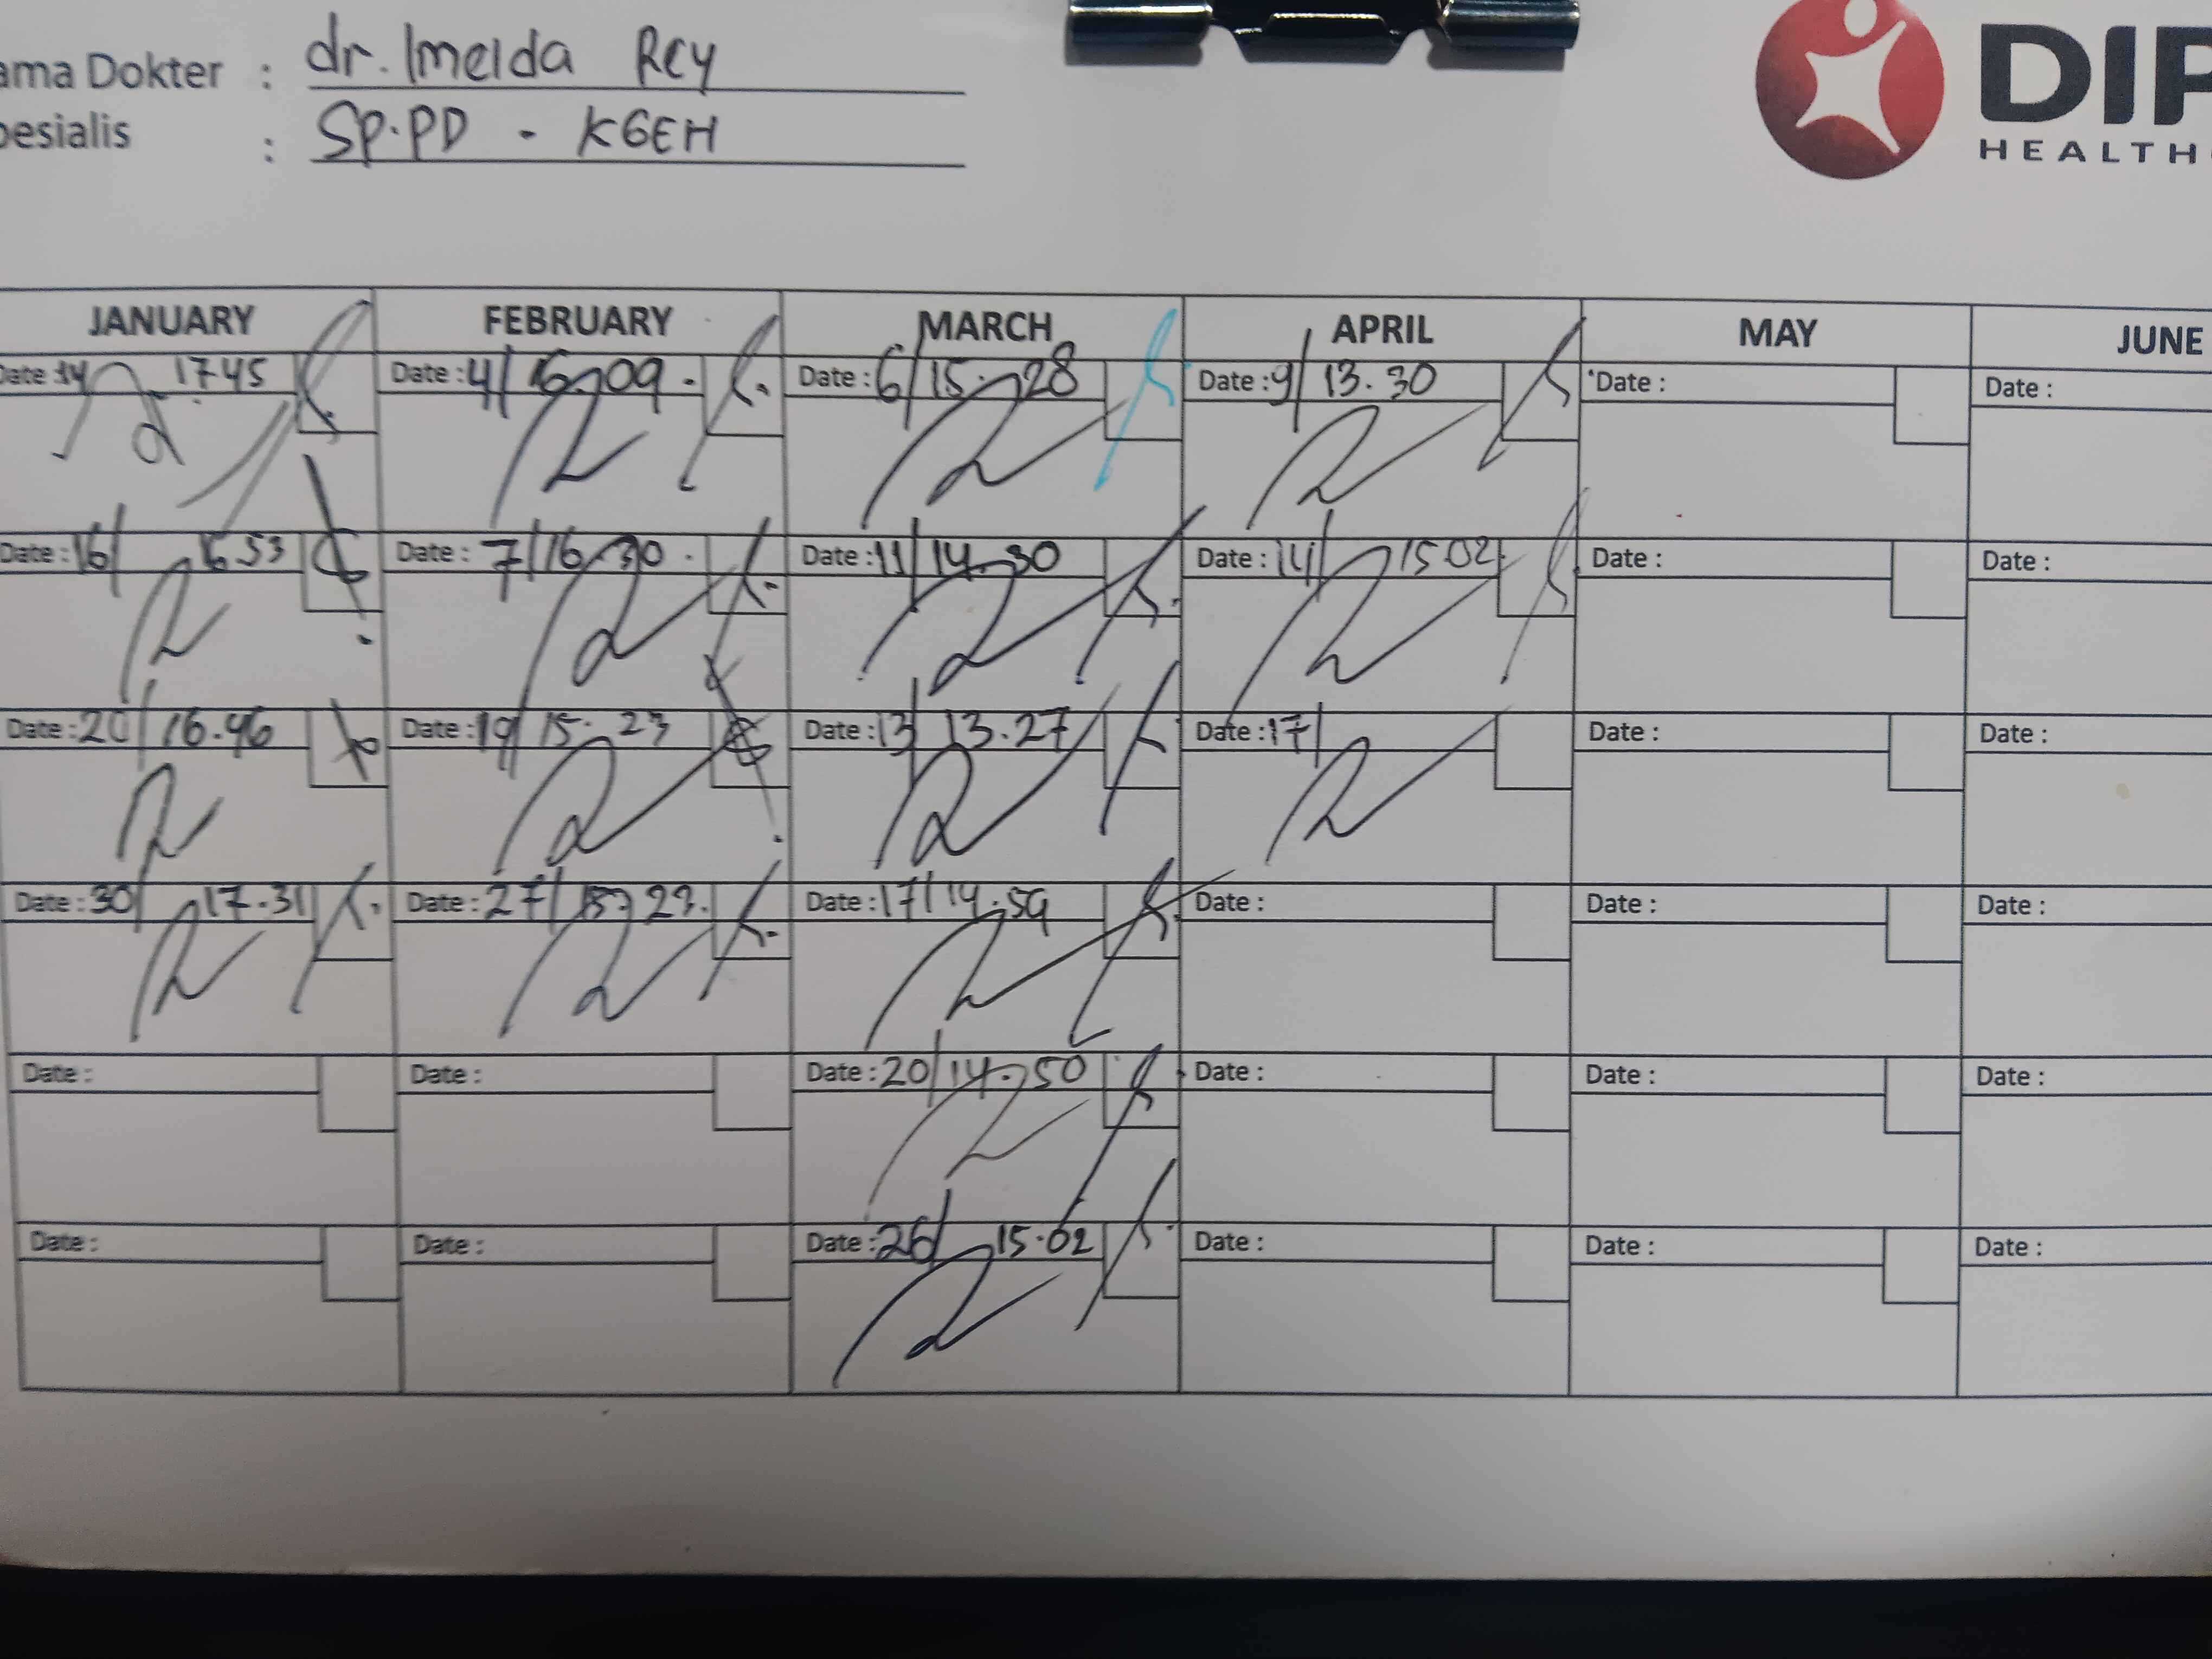 ama Dokter : dr. Imelda Rey
pesialis : SP.PD - KGEH
DIP
HEALTH
JANUARY FEBRUARY MARCH APRIL MAY JUNE
Date : 14 17.45 Date : 4/ 16.09. Date : 6/ 15.28 Date : 9/ 13.30 Date : Date :
Date : 16/ 16.53 Date : 7/ 16.30. Date : 11/ 14.30 Date : 14/ 15.02 Date : Date :
Date : 20/ 16.46 Date : 19/ 15.23 Date : 13/ 13.27 Date : 17/ Date : Date :
Date : 30/ 17.31 Date : 27/ Date : 17/ 14.59 Date : Date : Date :
Date : Date : Date : 20/ 14.50 Date : Date : Date :
Date : Date : Date : 26/ 15.02 Date : Date : Date :